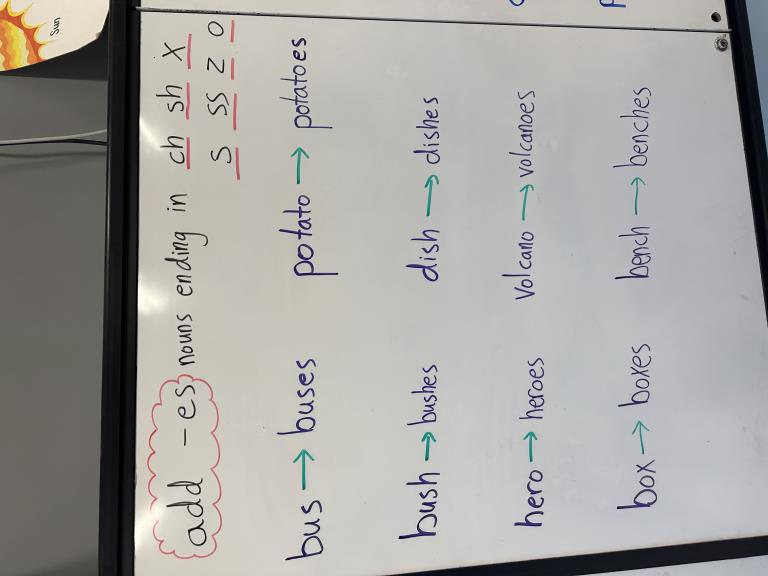 add -es nouns ending in ch sh x
s ss z o
bus → buses potato → potatoes
bush → bushes dish → dishes
hero → heroes volcano → volcanoes
box → boxes bench → benches
Sun